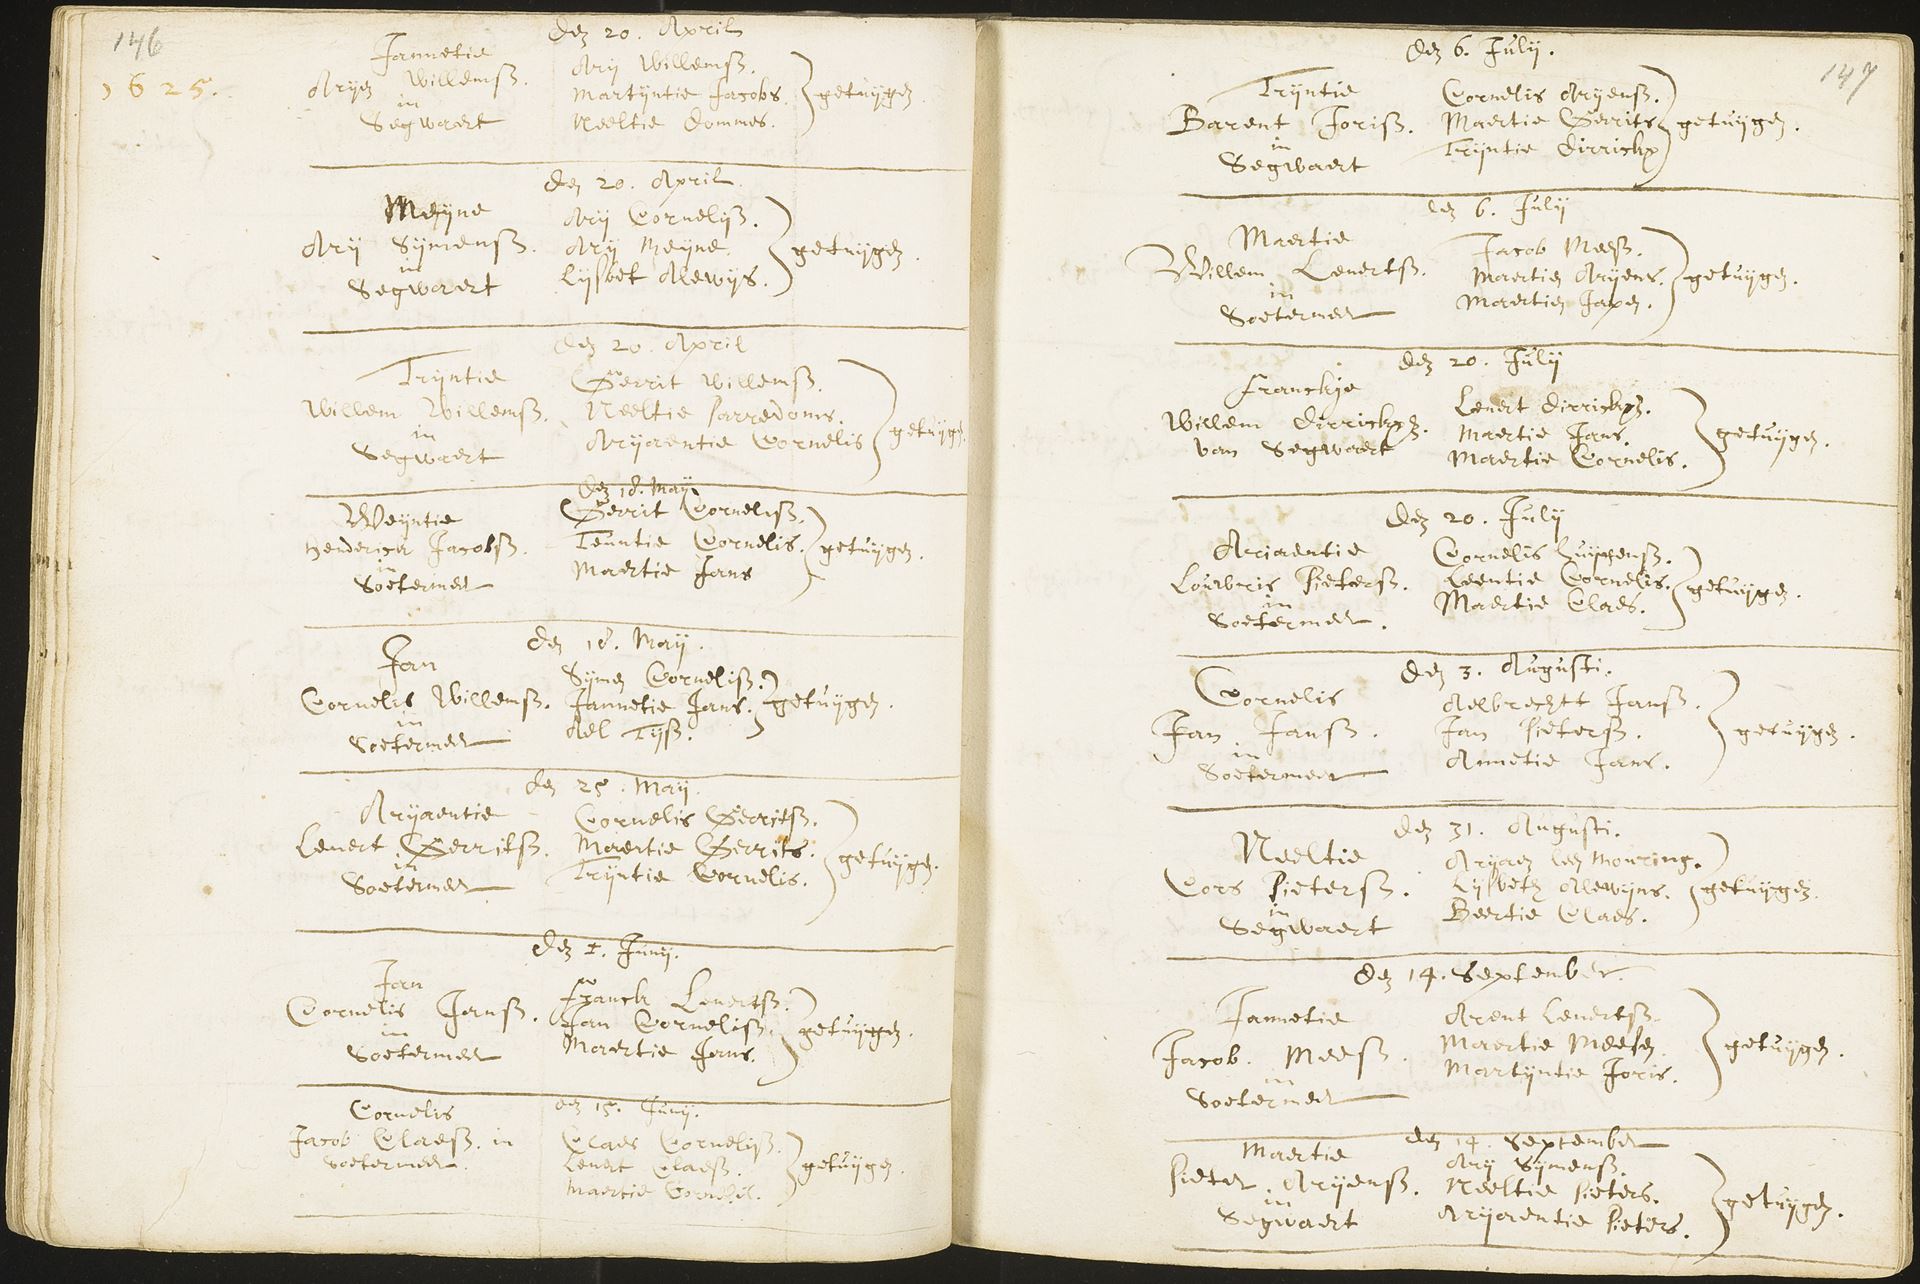 146
1625.
den 20. April
Jannetie
Aryen Willemsz.
in
Segwaert
Ary Willemsz.
Martyntie Jacobs.
Neeltie Dommes.
getuygen
den 20. April
Meyne
Ary Symensz.
in
Segwaert
Ary Cornelisz.
Ary Meyne.
Lysbet Alewys.
getuygen.
den 20. April
Tryntie
Willem Willemsz.
in
Segwaert
Gerrit Willemsz.
Neeltie
Aryaentie Cornelis
getuygen.
den 18. May
Weyntie
Henderick Jacobsz.
in
Soetermeer
Gerrit Cornelisz.
Teuntie Cornelis.
Maertie Jans
getuygen.
den 18. May.
Jan
Cornelis Willemsz.
in
Soetermeer
Symen Cornelisz.
Jannetie Jans.
Ael Tysz.
getuygen.
den 25. May.
Aryaentie
Lenert Gerritsz.
in
Soetermeer
Cornelis Gerritsz.
Maertie Gerrits.
Tryntie Cornelis.
getuygen.
den 1. Juny.
Jan
Cornelis Jansz.
in
Soetermeer
Franck Lenertsz.
Jan Cornelisz.
Maertie Jans.
getuygen.
den 15. Juny.
Cornelis
Jacob Claesz. in
Soetermeer.
Claes Cornelisz.
Lenert Claesz.
Maertie Cornelis.
getuygen.
147
den 6. July.
Tryntie
Barent Jorisz.
in
Segwaert
Cornelis Aryensz.
Maertie Gerrits
Tryntie Dirrickx
getuygen.
den 6. July
Maertie
Willem Lenertsz.
in
Soetermeer
Jacob Meesz.
Maertien Aryens.
Maertien Japen.
getuygen.
den 20. July
Franckje
Willem Dirrickxz.
van Segwaert
Lenert Dirrickxz.
Maertie Jans.
Maertie Cornelis.
getuygen.
den 20. July
Ariaentie
Louweris Pietersz.
in
Soetermeer.
Cornelis Huigensz.
Leentie Cornelis.
Maertie Claes.
getuygen.
den 3. Augusti.
Cornelis
Jan Jansz.
in
Soetermeer
Aelbrechtt Jansz.
Jan Pietersz.
Annetie Jans.
getuygen.
den 31. Augusti.
Neeltie
Cors Pietersz.
in
Segwaert
Aryaen Mouring.
Lysbeth Alewyns.
Beertie Claes.
getuygen.
den 14. September.
Jannetie
Jacob. Meesz.
in
Soetermeer
Arent Lenertsz.
Maertie Meesen
Martyntie Joris.
getuygen.
den 14. September
Maertie
Pieter Aryensz.
in
Segwaert
Ary Symensz.
Neeltie Pieters.
Aryaentie Pieters.
getuygen.